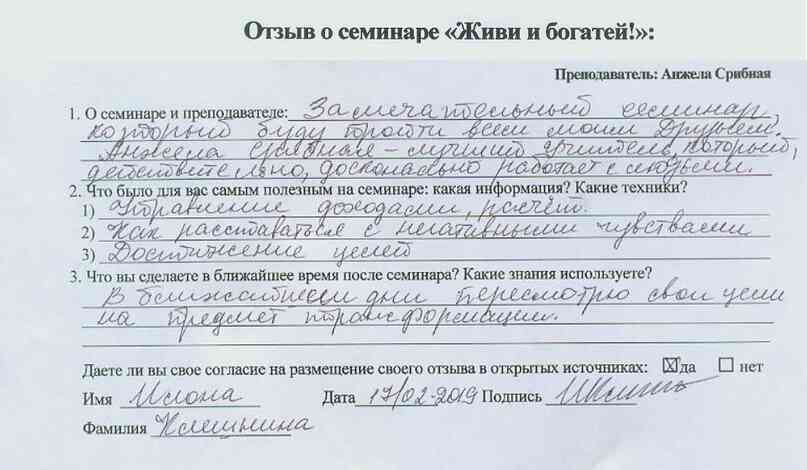 Отзыв о семинаре «Живи и богатей!»:
Преподаватель: Анжела Срибная
1. О семинаре и преподавателе: Замечательный семинар,
который буду пройти всем моим друзьям.
Анжела Срибная – лучший учитель, который,
действительно, досконально работает с людьми.
2. Что было для вас самым полезным на семинаре: какая информация? Какие техники?
1) Управление доходами, расчёт.
2) Как расставаться с негативными чувствами
3) Достижение целей
3. Что вы сделаете в ближайшее время после семинара? Какие знания используете?
В ближайшем дни пересмотрю свои цели
на предмет трансформации.
Даете ли вы свое согласие на размещение своего отзыва в открытых источниках: ☒ да ☐ нет
Имя Илона Дата 17/02-2019 Подпись
Фамилия Клешнина